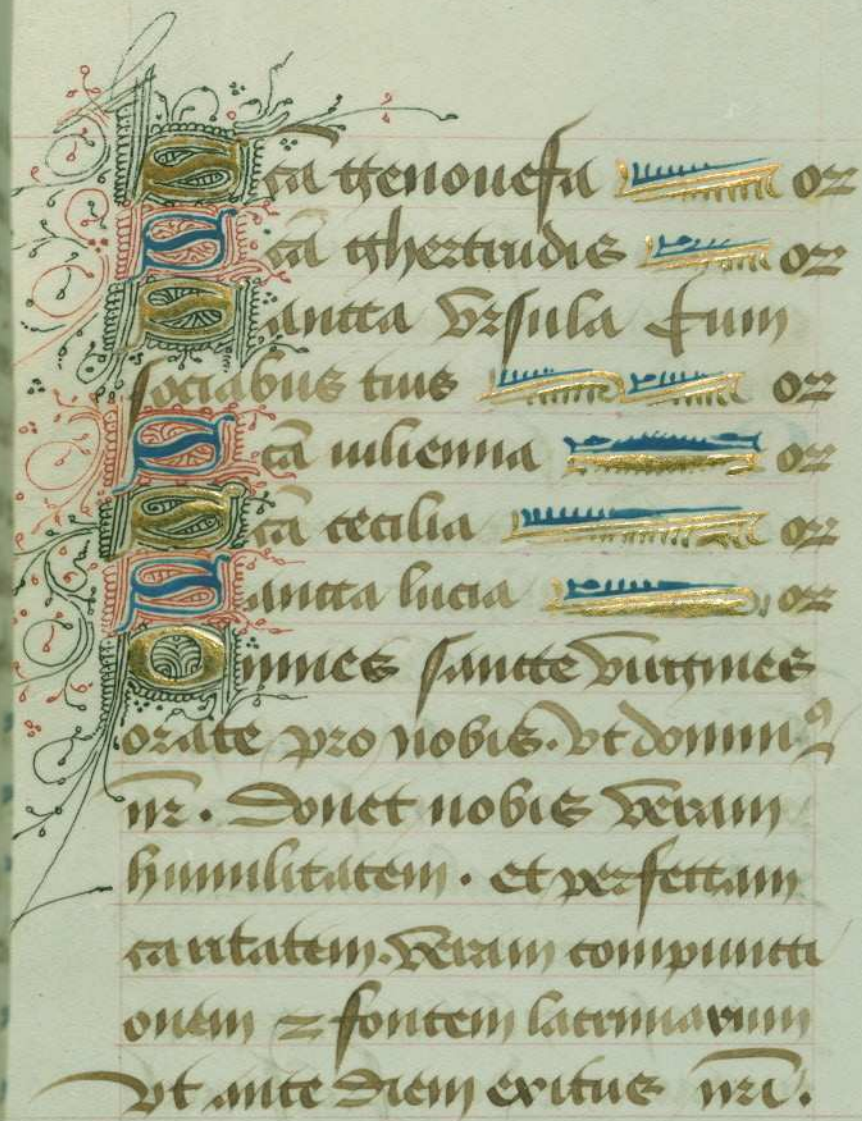 Sca genouefa or
Sca ghertrudis or
Sancta vrsula cum
sociabus tuis or
Scā iulienna or
Scā cecilia or
Sancta lucia or
Omnes sancte virgines
orate pro nobis. vt domin⁹
nr̄. Donet nobis veram
humilitatem. et perfectam
caritatem. veram compuncti
onem ⁊ fontem lacrimarum
vt ante diem exitus nr̄i.